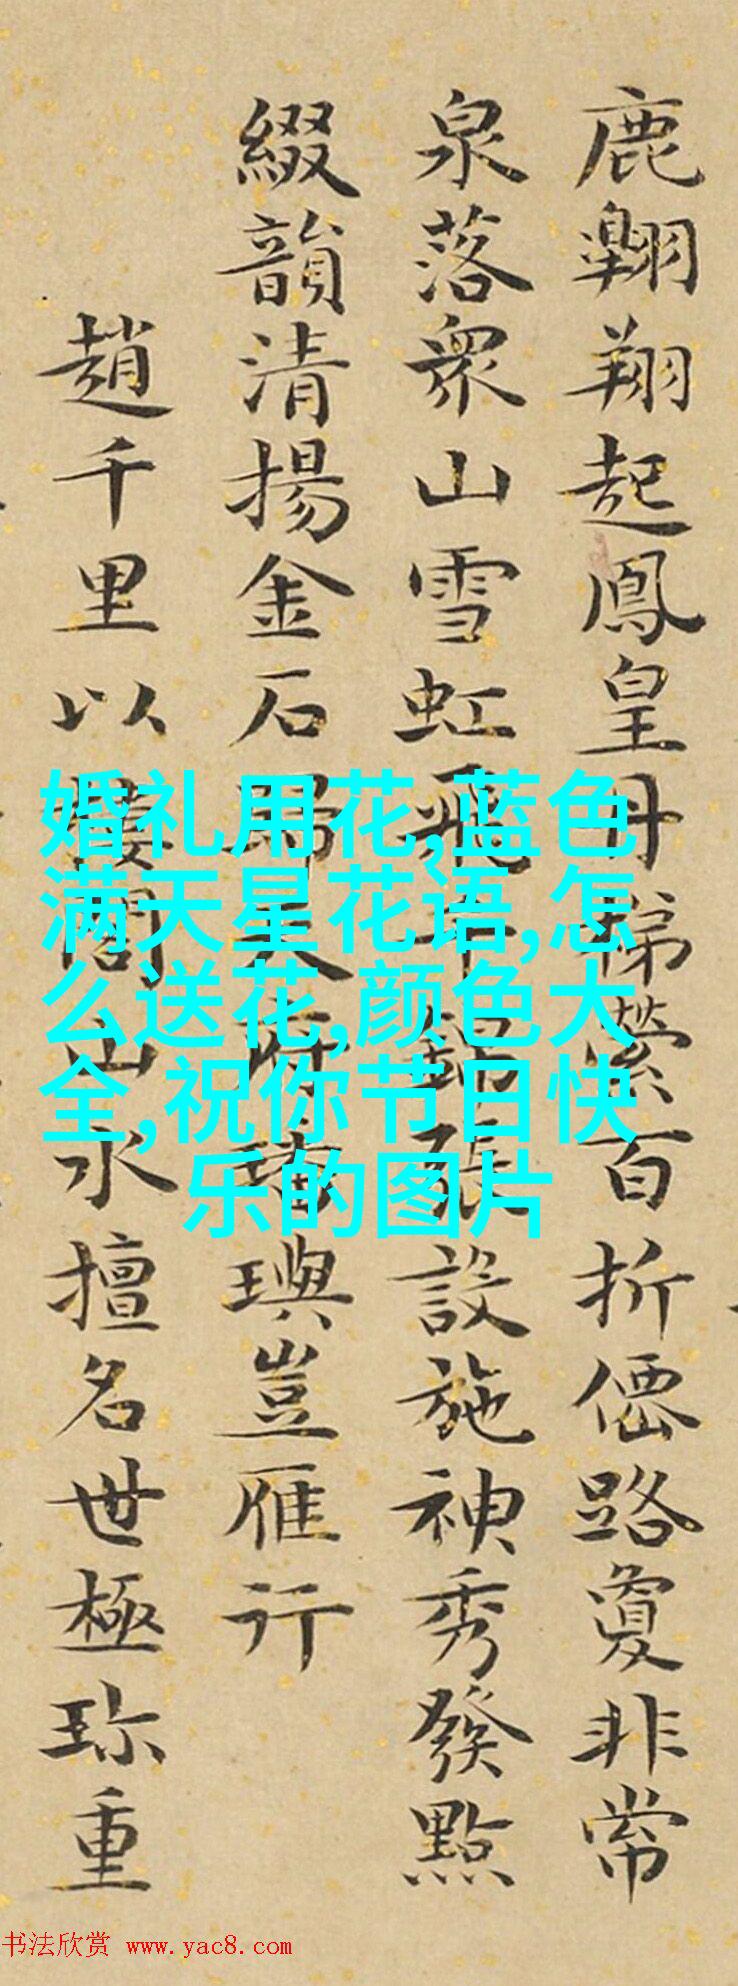 鹿翱翔起鳳皇丹梯縈百折僊路敻非常
泉落衆山雪虹飛千錦張設施神秀發點
綴韻清揚金石歸天府璠璵豈雁行
趙千里以樓閣山水擅名世極珎重
婚礼用花,蓝色
满天星花语,怎
么送花,颜色大
全,祝你节日快
乐的图片
书法欣赏 www.yac8.com